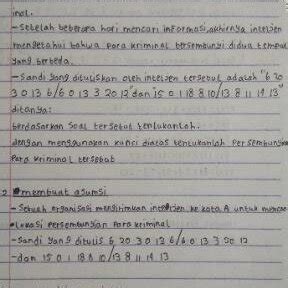 inal.
- Setelah beberapa hari mencari informasi, akhirnya intelijen
mengetahui bahwa para kriminal bersembunyi didua tempat
yang berbeda.
- Sandi yang dituliskan oleh inteljen tersebut adalah "6 20
3 0 13 6/6 0 13 3 20 12" dan 15 0 1 18 8 10/13 8 11 14 13"
ditanya:
berdasarkan soal tersebut tentukanlah.
dengan menggunakan kunci diatas tentukanlah persembunyi
para kriminal tersebut
2. membuat asumsi
- Sebuah organisasi mengirimkan intelijen ke kota A untuk mencar
- lokasi persembunyian para kriminal
- Sandi yang ditulis 6 20 3 0 13 6/6 0 13 3 20 12
- dan 15 0 1 18 8 10/13 8 11 14 13